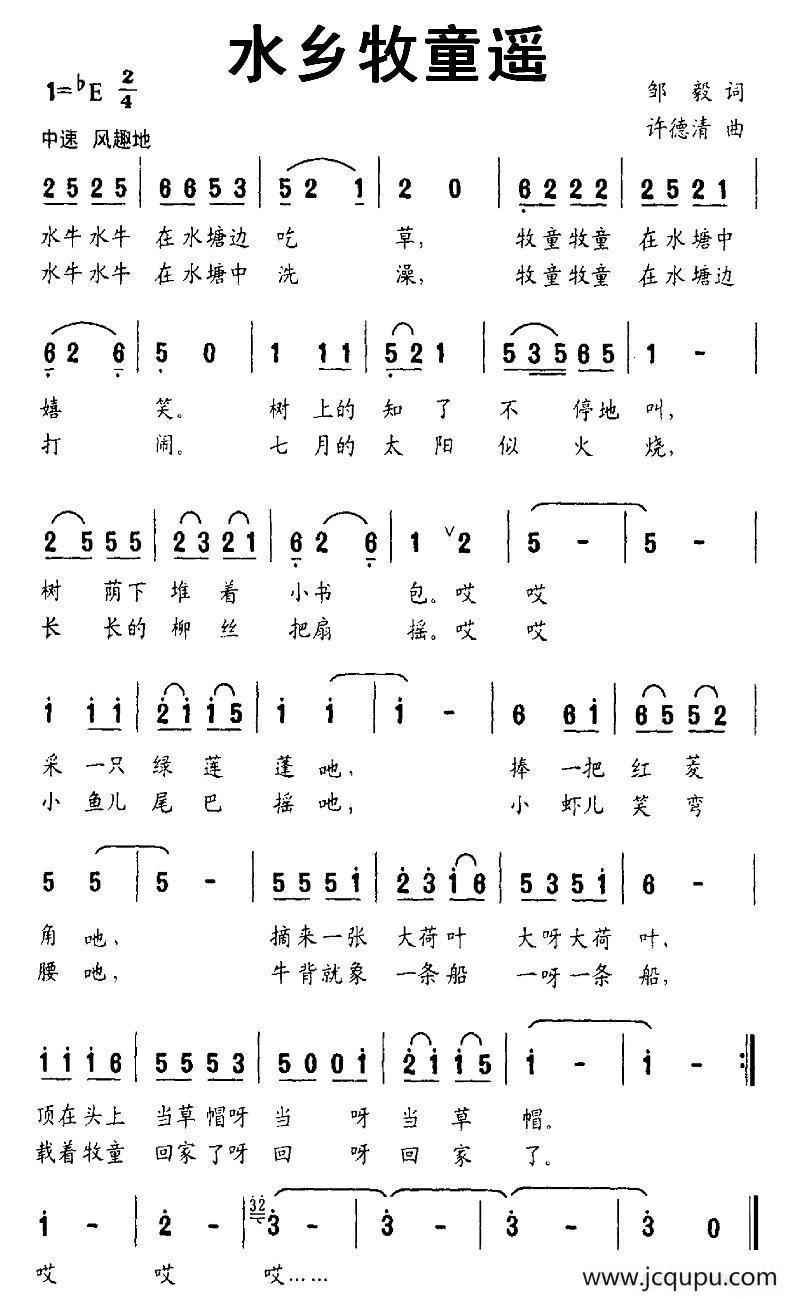 水乡牧童谣
1=♭E 2/4
邹 毅 词
中速 风趣地
许德清 曲
2 5 2 5 | 6 6 5 3 | 5 2 1 | 2 0 | 6 2 2 2 | 2 5 2 1 |
水牛水牛 在水塘边 吃 草, 牧童牧童 在水塘中
水牛水牛 在水塘中 洗 澡, 牧童牧童 在水塘边
6 2 6 | 5 0 | 1 1 1 | 5 2 1 | 5 3 5 6 5 | 1 - |
嬉 笑。 树 上的 知 了 不 停地 叫,
打 闹。 七 月的 太 阳 似 火 烧,
2 5 5 5 | 2 3 2 1 | 6 2 6 | 1 ∨ 2 | 5 - | 5 - |
树 荫下 堆 着 小书 包。哎 哎
长 长的 柳 丝 把扇 摇。哎 哎
1 1 1 | 2 1 1 5 | 1 1 | 1 - | 6 6 1 | 6 5 5 2 |
采 一只 绿 莲 蓬 吔, 捧 一把 红 菱
小 鱼儿 尾 巴 摇 吔, 小 虾儿 笑 弯
5 5 | 5 - | 5 5 5 1 | 2 3 1 6 | 5 3 5 1 | 6 - |
角 吔, 摘来一张 大荷叶 大呀大荷 叶,
腰 吔, 牛背就象 一条船 一呀一条 船,
1 1 1 6 | 5 5 5 3 | 5 0 0 1 | 2 1 1 5 | 1 - | 1 - :‖
顶在头上 当草帽呀 当 呀 当 草 帽。
载着牧童 回家了呀 回 呀 回 家 了。
1 - | 2 - | 3 2 3 - | 3 - | 3 - | 3 0 ‖
哎 哎 哎……
www.jcqupu.com